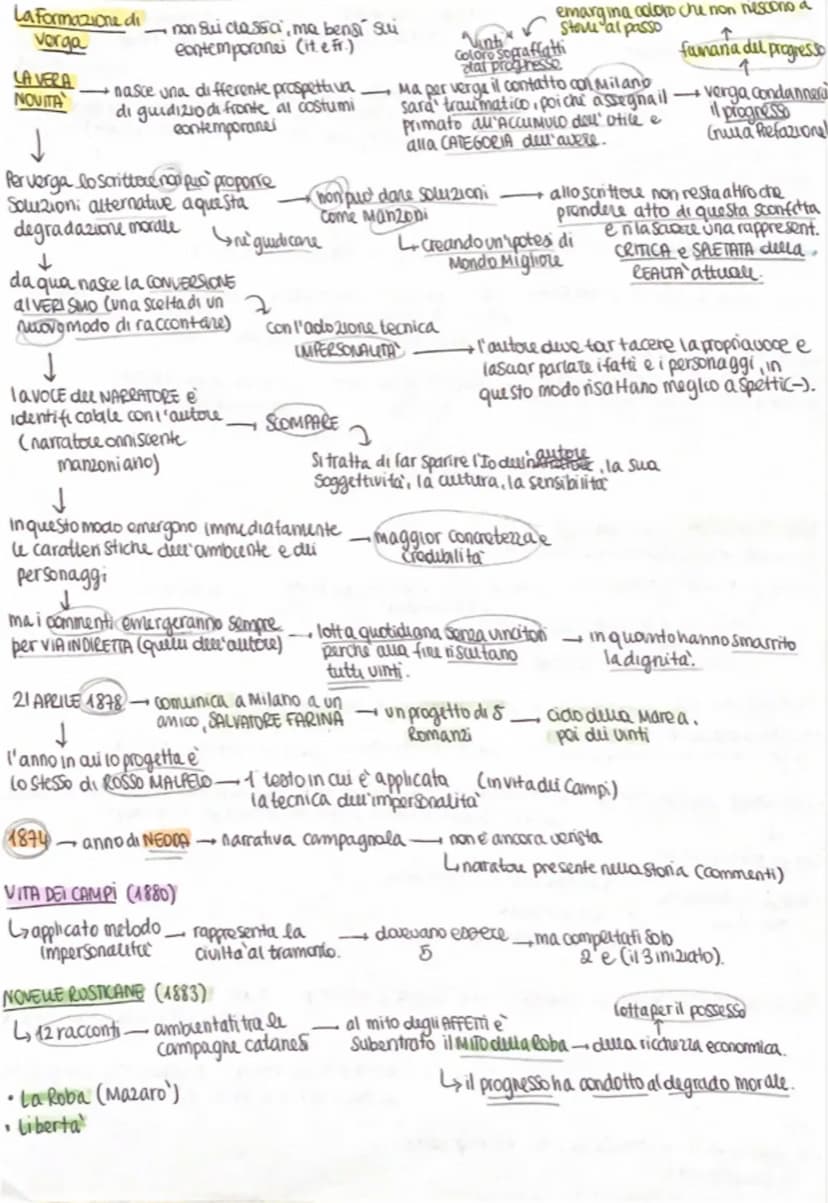 La Formazione di verga → non sui classici, ma bensì sui contemporanei (it. e Fr.)
"Vinti" coloro sopraffatti dal progresso
emargina coloro che non riescono a stare al passo
fiumana del progresso
LA VERA NOVITÀ → nasce una differente prospettiva di giudizio di fronte ai costumi contemporanei → Ma per verga il contatto con Milano sarà traumatico, poiché assegna il primato all'ACCUMULO dell'utile e alla CATEGORIA dell'avere. → verga condannerà il progresso (nella Prefazione)
Per verga lo scrittore non può proporre soluzioni alternative a questa degradazione morale
↳ né giudicare
→ non può dare soluzioni come Manzoni
↳ creando un'ipotesi di Mondo Migliore
→ allo scrittore non resta altro che prendere atto di questa sconfitta e rilasciare una rappresent. CRITICA e SPIETATA della REALTÀ attuale.
da qua nasce la CONVERSIONE al VERISMO (una scelta di un nuovo modo di raccontare)
con l'adozione tecnica IMPERSONALITÀ → l'autore deve far tacere la propria voce e lasciar parlare i fatti e i personaggi, in questo modo risaltano meglio aspetti(-).
la VOCE del NARRATORE è identificabile con l'autore (narratore onnisciente manzoniano) → SCOMPARE
Si tratta di far sparire l'Io dell'autore, la sua soggettività, la cultura, la sensibilità
In questo modo emergono immediatamente le caratteristiche dell'ambiente e dei personaggi → maggior concretezza e credibilità
ma i commenti emergeranno sempre per VIA INDIRETTA (quelli dell'autore) → lotta quotidiana senza vincitori perché alla fine risultano tutti vinti. → in quanto hanno smarrito la dignità.
21 APRILE 1878 → comunica a Milano a un amico, SALVATORE FARINA → un progetto di 5 Romanzi → ciclo della Marea, poi dei vinti
l'anno in cui lo progetta è lo stesso di ROSSO MALPELO → 1 testo in cui è applicata la tecnica dell'impersonalità (in vita dei Campi)
1874 → anno di NEDDA → narrativa campagnola → non è ancora verista
↳ narratore presente nella storia (commenti)
VITA DEI CAMPI (1880)
↳ applicato metodo impersonalità → rappresenta la civiltà al tramonto. → dovevano essere 5 → ma completati solo 2 e (il 3 iniziato).
NOVELLE RUSTICANE (1883)
↳ 12 racconti → ambientati tra le campagne catanesi → al mito degli AFFETTI è subentrato il MITO della Roba → della ricchezza economica.
lotta per il possesso
↳ il progresso ha condotto al degrado morale.
• La Roba (Mazarò)
• Libertà